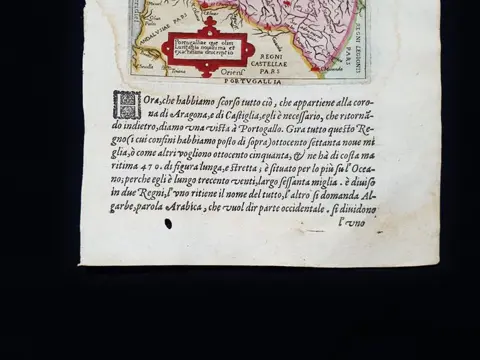 ANDALUSIAE PARS
Portugalliae que olim
Lusitania novissima et
exactissima descriptio
REGNI
CASTELLAE
PARS
REGNI LEGIONIS
PARS
Oriens
PORTVGALLIA
HOra, che habbiamo scorso tutto ciò, che appartiene alla coro
na di Aragona, e di Castiglia, egli è necessario, che ritornā
do indietro, diamo vna vista à Portogallo. Gira tutto questo Re
gno (i cui confini habbiamo posto di sopra) ottocento settanta noue mi
glia, ò come altri vogliono ottocento cinquanta, & ne hà di costa ma
ritima 470. di figura lunga, e stretta; è situato per lo più su l'Ocea
no; perche egli è lungo trecento venti, largo sessanta miglia. è diuiso
in due Regni, l'vno ritiene il nome del tutto, l'altro si domanda Al
garbe, parola Arabica, che vuol dir parte occidentale. si diuidono
l'vno